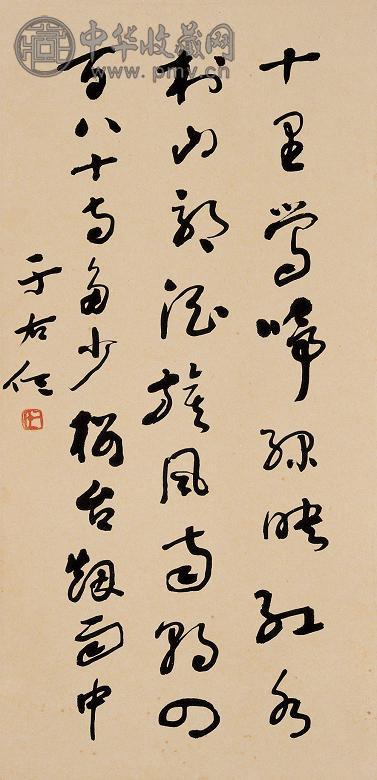 中华收藏网
www.pmv.cn
十里鶯啼綠映紅水
村山郭酒旗風南朝四
百八十寺多少樓台煙雨中
于右任